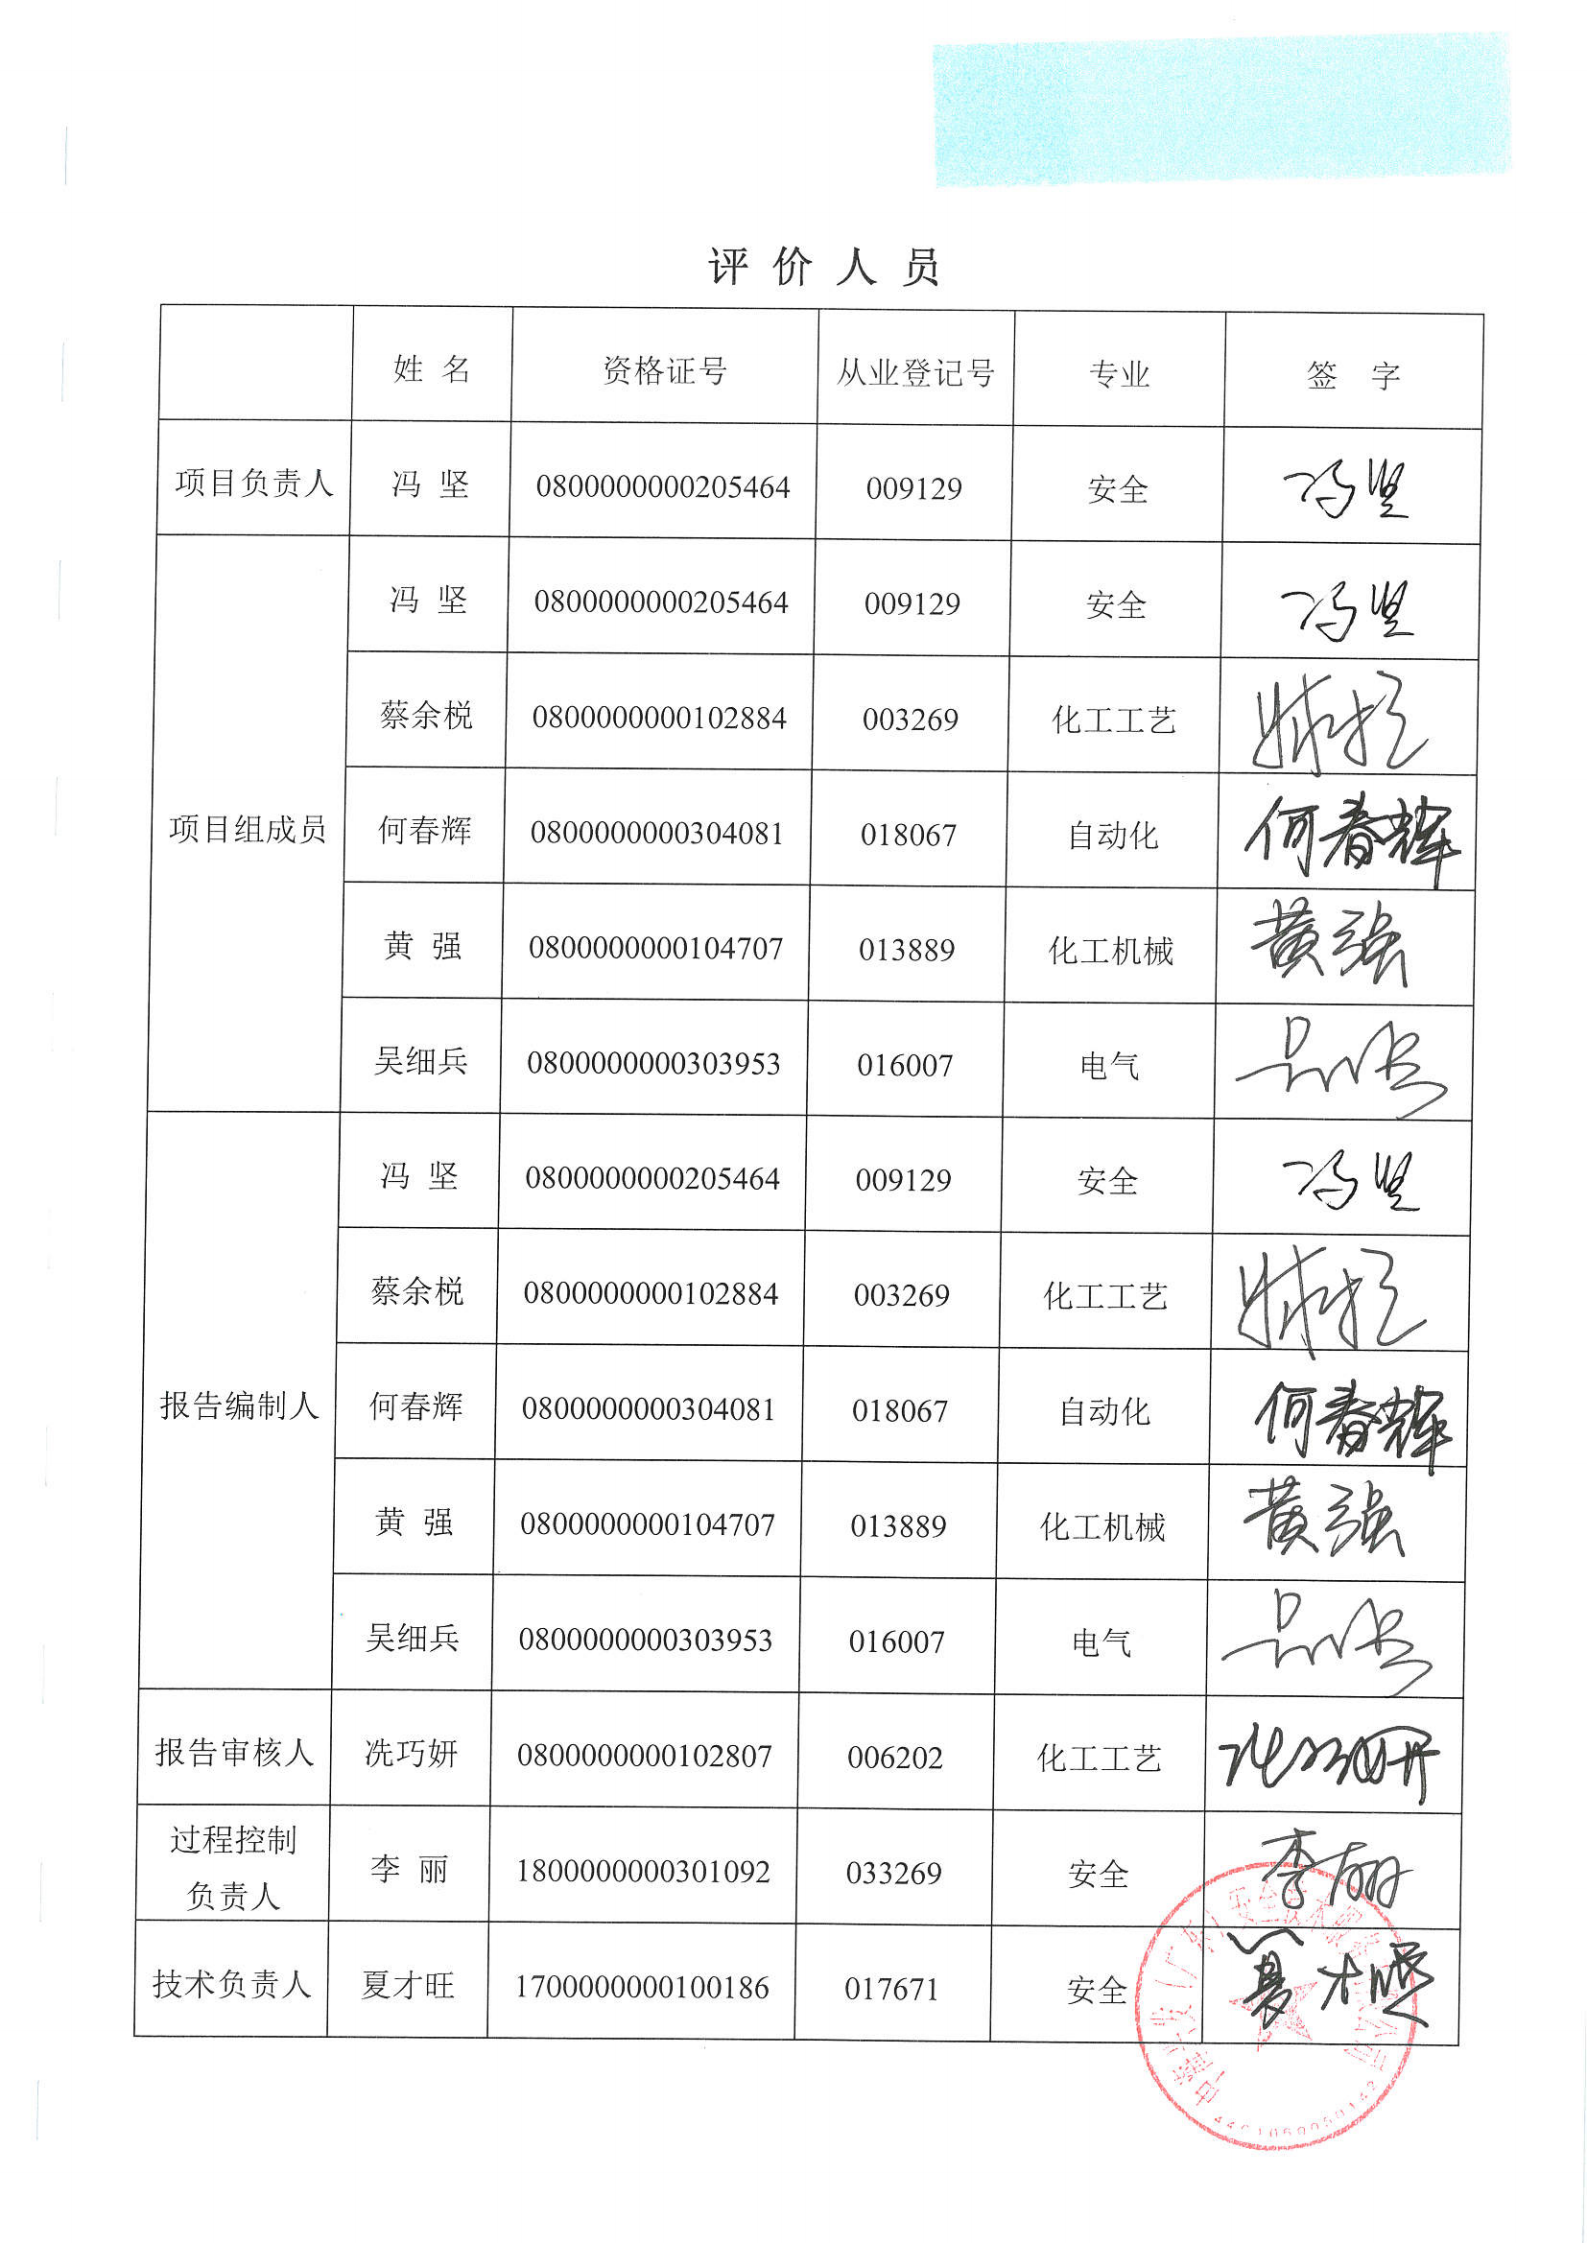 评价人员
姓名 资格证号 从业登记号 专业 签字
项目负责人 冯坚 0800000000205464 009129 安全 冯坚
项目组成员 冯坚 0800000000205464 009129 安全 冯坚
蔡余棁 0800000000102884 003269 化工工艺
何春辉 0800000000304081 018067 自动化 何春辉
黄强 0800000000104707 013889 化工机械 黄强
吴细兵 0800000000303953 016007 电气
报告编制人 冯坚 0800000000205464 009129 安全 冯坚
蔡余棁 0800000000102884 003269 化工工艺
何春辉 0800000000304081 018067 自动化 何春辉
黄强 0800000000104707 013889 化工机械 黄强
吴细兵 0800000000303953 016007 电气
报告审核人 冼巧妍 0800000000102807 006202 化工工艺
过程控制
负责人 李丽 1800000000301092 033269 安全 李丽
技术负责人 夏才旺 1700000000100186 017671 安全 夏才旺